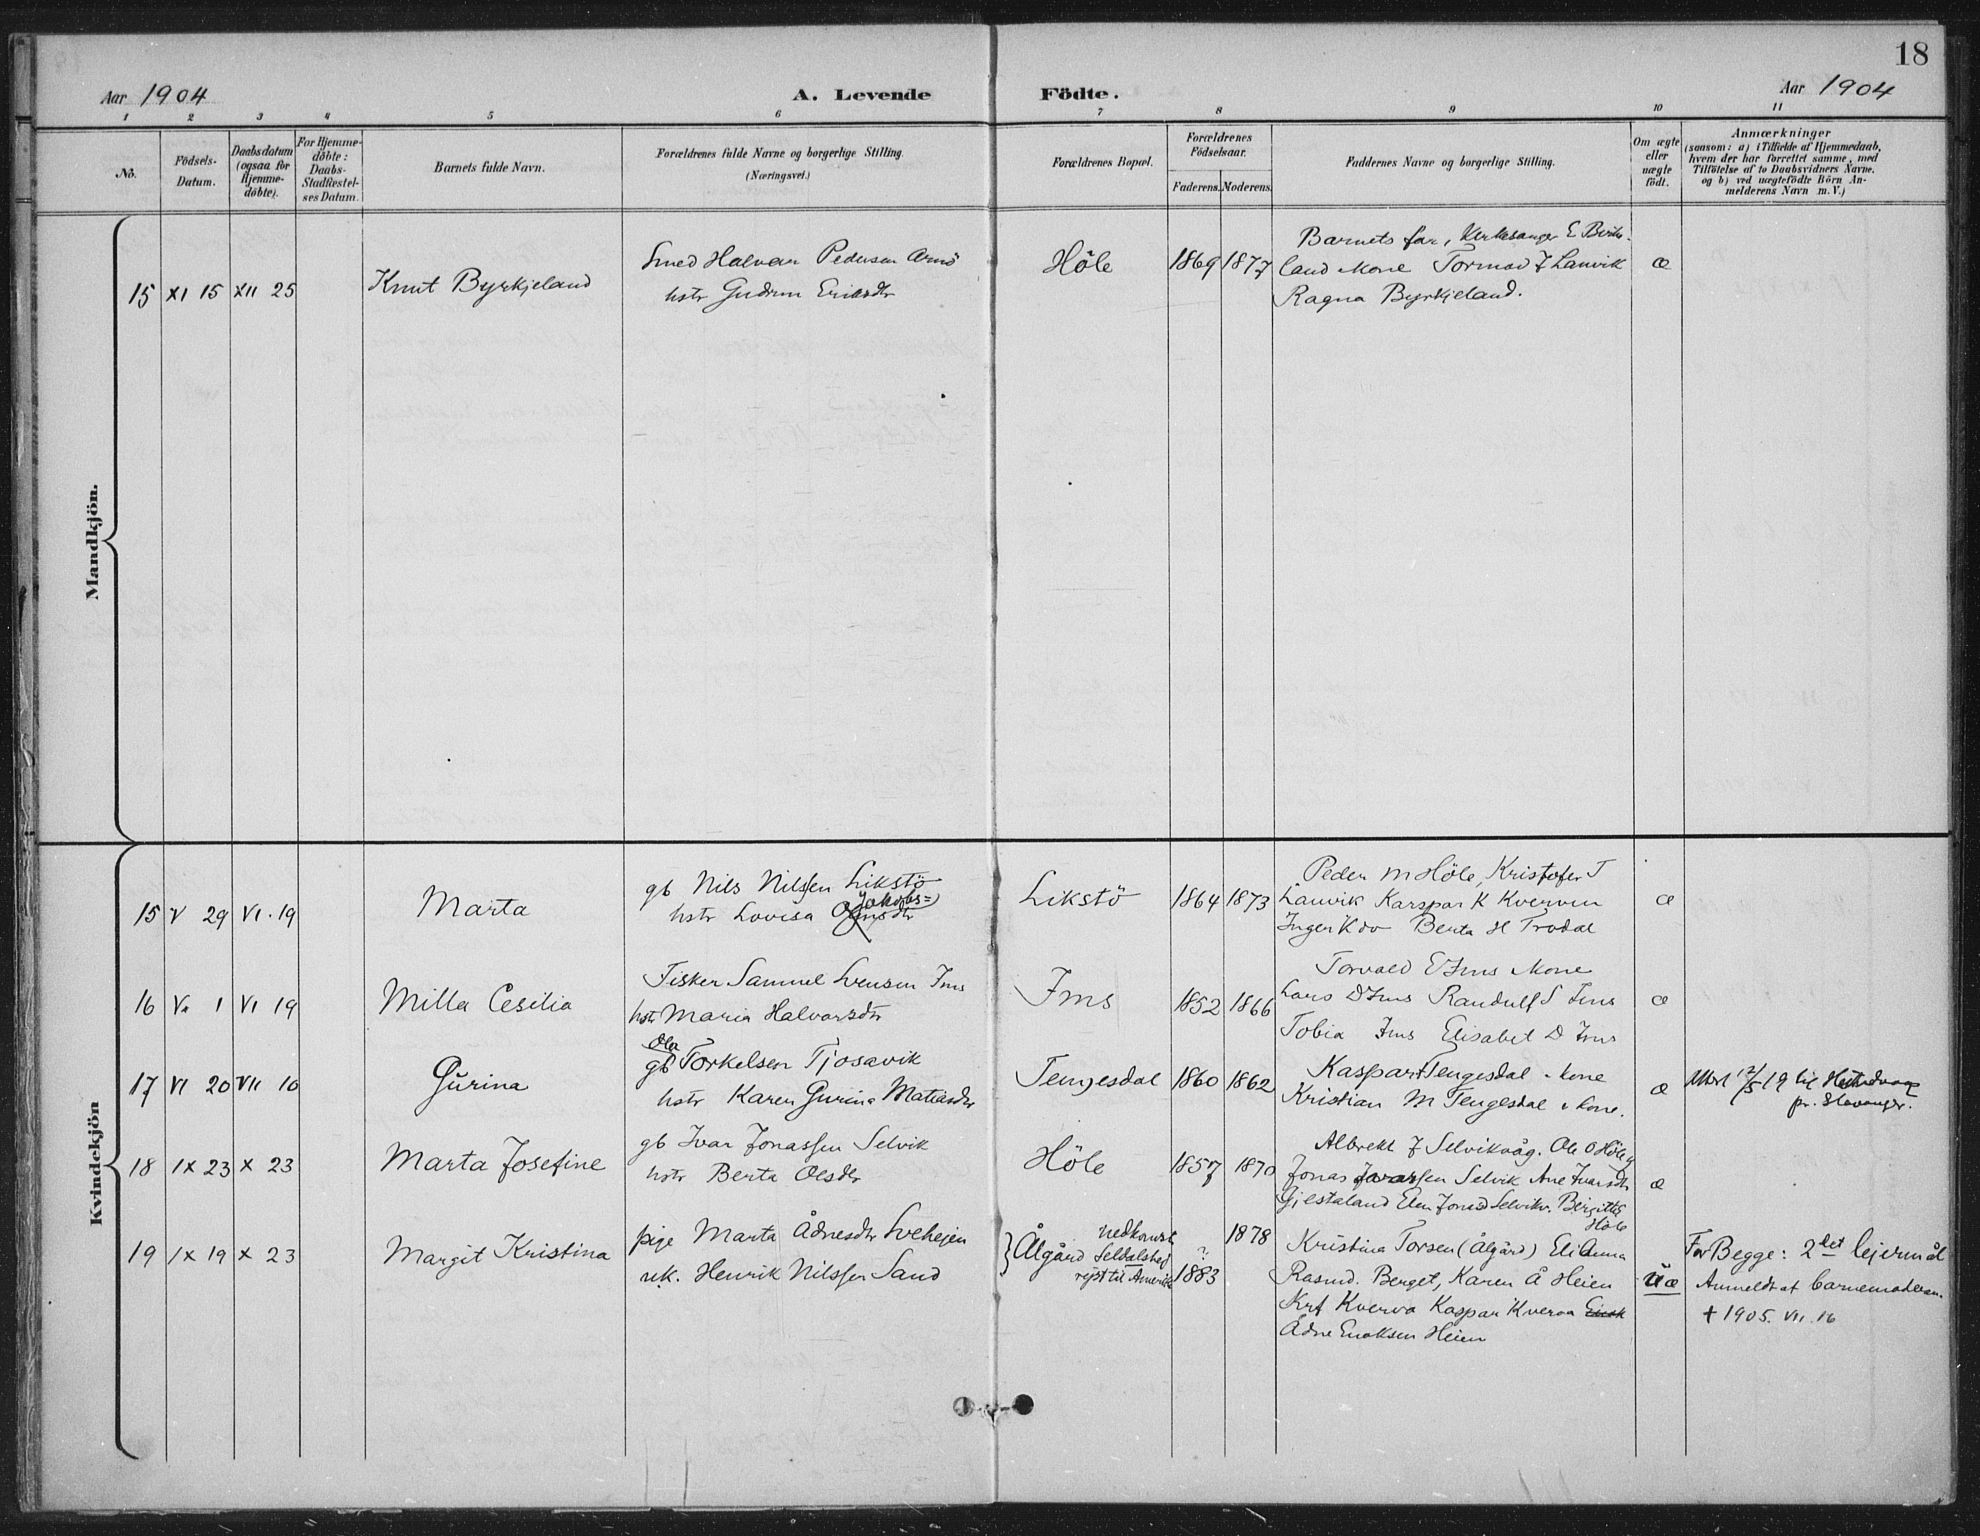 18
Aar 1904
A. Levende Födte.
Aar 1904
1 2 3 4 5 6 7 8 9 10 11
No.
Födsels-
Datum.
Daabsdatum
(ogsaa for
Hjemme-
döbte).
For Hjemme-
döbte:
Daabs-
Stadfæstel-
ses Datum.
Barnets fulde Navn.
Forældrenes fulde Navne og borgerlige Stilling.
(Næringsvei.)
Forældrenes Bopæl.
Forældrenes
Födselsaar.
Faderens. Moderens.
Faddernes Navne og borgerlige Stilling.
Om ægte
eller
uægte
födt.
Anmærkninger
(saasom: a) i Tilfælde af Hjemmedaab,
hvem der har forrettet samme, med
Tilföielse af to Daabsvidners Navne.
og b) ved uægtefödte Börn An-
melderens Navn m.V.)
Mandkjön.
15 XI 15 XII 25
Knut Byrkjeland
Smed Halvar Pedersen Arnö
hstr Gudrun Eriksdtr
Höle
1869 1877
Barnets far, Kirkesanger E Birke-
land & kone Tormod J Lauvik
Ragna Byrkjeland.
æ
Kvindekjön
15 V 29 VI. 19
Marta
gb Nils Nilssen Likstö
hstr Lovisa Jakobs=dtr
Likstö
1864 1873
Peder M Höle, Kristofer T
Lauvik Karspar K Kverven
Inger K do Berta H Trodal
æ
16 1 VI 19
Milla Cesilia
Fisker Samuel Svensen Ims
hstr Maria Halvorsdtr
Ims
1852 1866
Torvald E Ims & kone
Lars D Ims Randulf S Ims
Tobia Ims Elisabet D Ims
æ
17 VI 20 VII 10
Gurina
Ola
gb Torkelsen Tjosavik
hstr Karen Gurina Matiasdtr
Tengesdal
1860 1862
Kaspar Tengesdal & kone
Kristian M Tengesdal & kone.
æ
12/5 19 til
pr. Stavanger.
18 IX 23 X 23
Marta Josefine
gb Ivar Jonassen Selvik
hstr Berta Olesdtr
Höle
1857 1870
Albrekt J Selvikvåg. Ole O Höle
Jonas Ivarssen Selvik Ane Ivarsdtr
Gjestaland Elen Jonasd Selvikv. Bergitte
Höle
æ
19 IX 19 X 23
Margit Kristina
pige Marta Ådnesdtr Svehejen
uk. Henrik Nilssen Sand
Ålgård nedkomst
Seldalshej
rejst til Amerika
? 1883
1878
Kristina Torsen (Ålgård) Eli Anna
Rasmd. Berget, Karen Å Heien
Krf Kverva Kaspar Kverva Enok
Ådne Enoksen Heien
uæ
For Begge: 2det lejermål
Anmeldt af barnemoderen.
† 1905. VII. 16